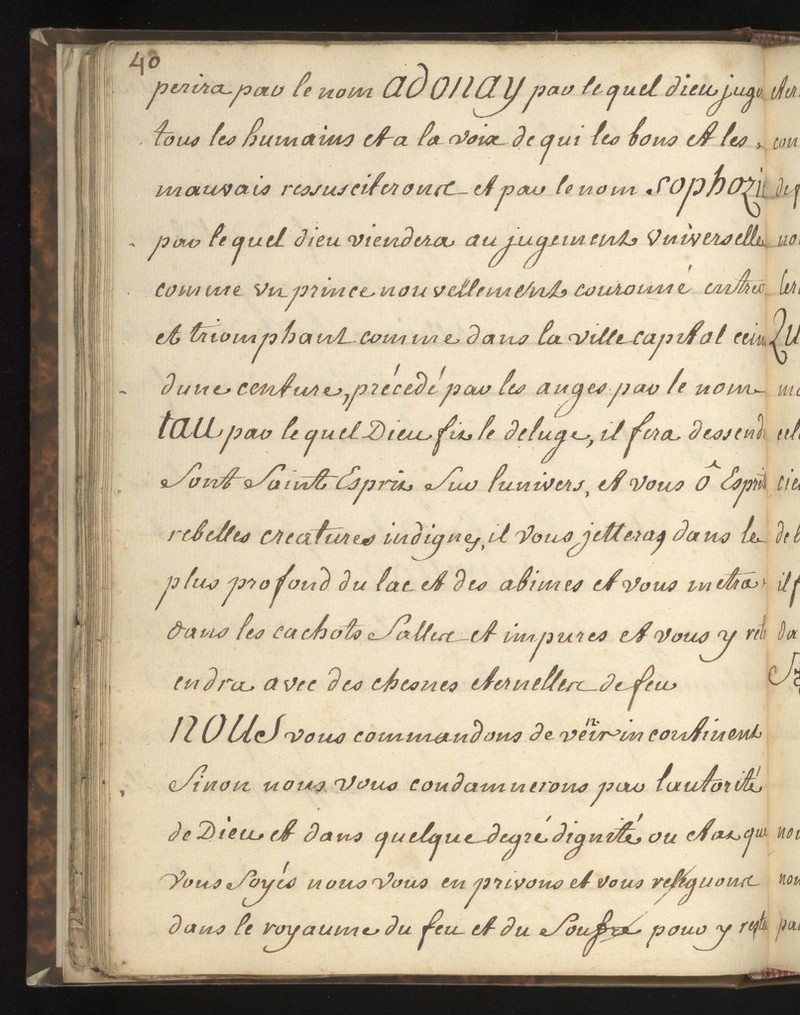 40
perira par le nom adonay par lequel dieu juge
tous les humains et a la voix de qui les bons et les
mauvais ressusciteront et par le nom sophozi
par lequel dieu viendera au jugement vniverselle
comme vn prince nouvellement couronné entrée
et triomphant comme dans la ville capital cein
dune centure, précédé par les anges par le nom
tau par lequel Dieu fit le deluge, il fera dessend
Sont Saint Esprit Sur lunivers, et vous ô Esprit
rebelles creatures indignes, il vous jetteras dans le
plus profond du lac et des abimes et vous metra
dans les cachots Salles et impures et vous y reti
endra avec des chesnes eternelles de feu
NOUS vous commandons de venir incontinent
Sinon nous vous condamnerons par lautorité
de Dieu et dans quelque degré dignité ou etat que
vous Soyés nous vous en privons et vous releguons
dans le royaume du feu et du Soufre pour y reste